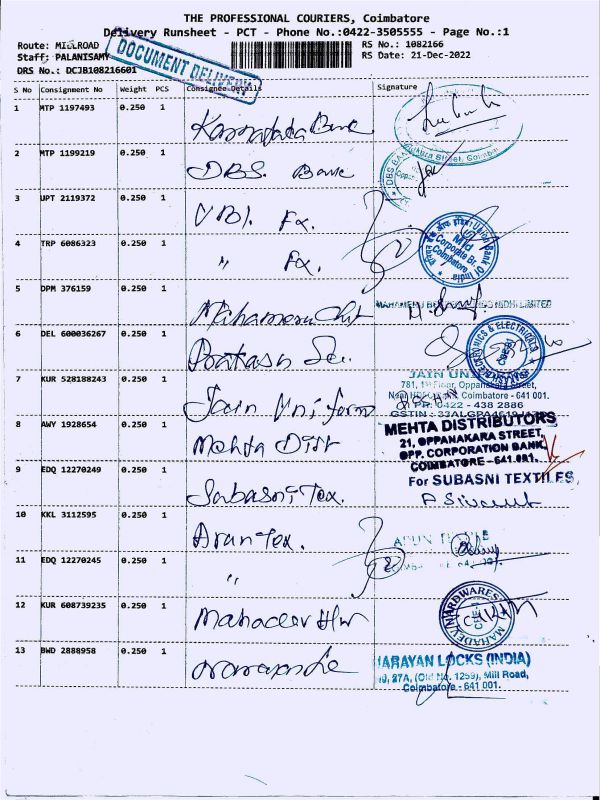 THE PROFESSIONAL COURIERS, Coimbatore
Delivery Runsheet - PCT - Phone No.:0422-3505555 - Page No.:1
Route: MILLROAD
RS No.: 1082166
Staff: PALANISAMY
RS Date: 21-Dec-2022
DRS No.: DCJB108216601
DOCUMENT DELIVERY
S No Consignment No Weight PCS Consignee Details Signature
1 MTP 1197493 0.250 1 Karnataka Bank
2 MTP 1199219 0.250 1 DBS. Bank
3 UPT 2119372 0.250 1 UBI. Fx.
4 TRP 6086323 0.250 1 " Fx.
Mid Corporate Br.
Coimbatore
Union Bank Of India
5 DPM 376159 0.250 1 Mahameru Chit
6 DEL 600036267 0.250 1 Prakash
7 KUR 528188243 0.250 1 Jain Uniform
JAIN UNI
781, 1st Floor, Oppanakara Street,
Coimbatore - 641 001.
PH: 0422 - 438 2886
8 AWY 1928654 0.250 1 Mehta Dist
MEHTA DISTRIBUTORS
21, OPPANAKARA STREET,
OPP. CORPORATION BANK,
COIMBATORE - 641 001.
9 EDQ 12270249 0.250 1 Sabasni Tex.
For SUBASNI TEXTILES,
10 KKL 3112595 0.250 1 Arun Tex.
11 EDQ 12270245 0.250 1 "
12 KUR 608739235 0.250 1 Mahadev H/w
MAHADEV HARDWARES
13 BWD 2888958 0.250 1 Narayan Lo
NARAYAN LOCKS (INDIA)
27A, (Old No. 1259), Mill Road,
Coimbatore - 641 001.